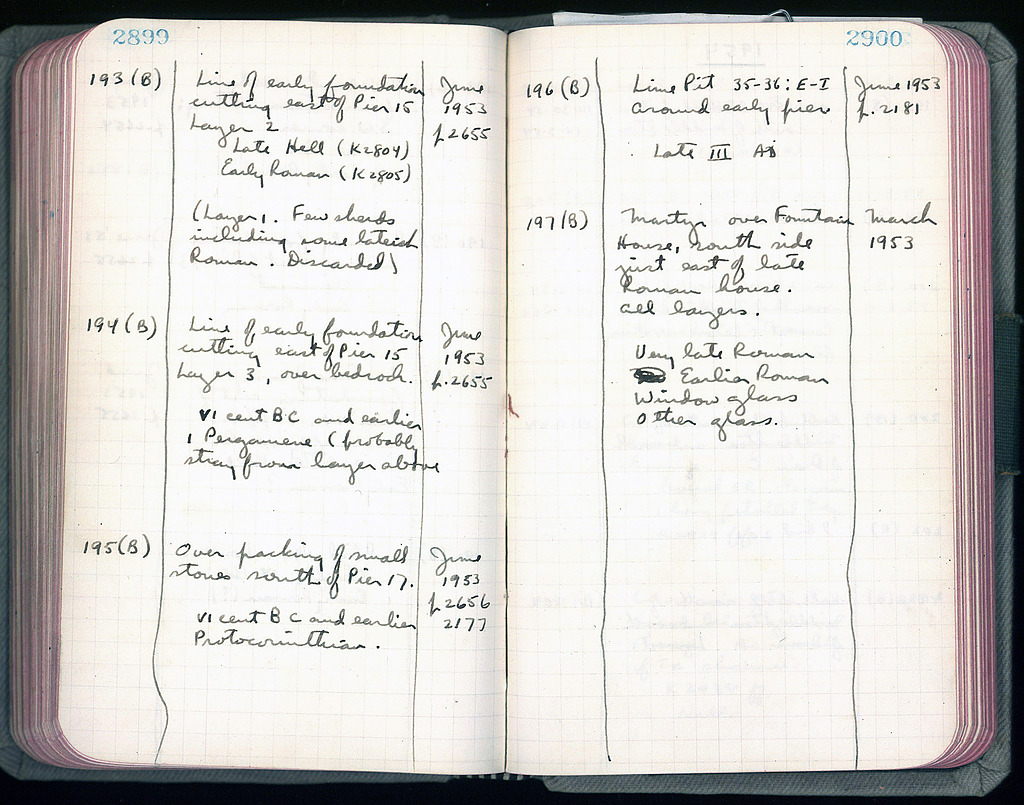 2899
193 (B) Line of early foundation June
cutting east of Pier 15 1953
Layer 2 p. 2655
Late Hell (K2804)
Early Roman (K2805)
(Layer 1. Few sherds
including some lateish
Roman. Discarded)
194 (B) Line of early foundation June
cutting east of Pier 15 1953
Layer 3, over bedrock. p. 2655
VI cent BC and earlier
1 Pergamene (probably
stray from layer above
195 (B) Over packing of small June
stones south of Pier 17. 1953
p. 2656
VI cent BC and earlier 2177
Protocorinthian.
2900
196 (B) Lime Pit 35-36: E-I June 1953
around early pier p. 2181
Late III AD
197 (B) Martyr over Fountain March
House, south side 1953
just east of late
Roman house.
all layers.
Very late Roman
Earlier Roman
Window glass
Other glass.